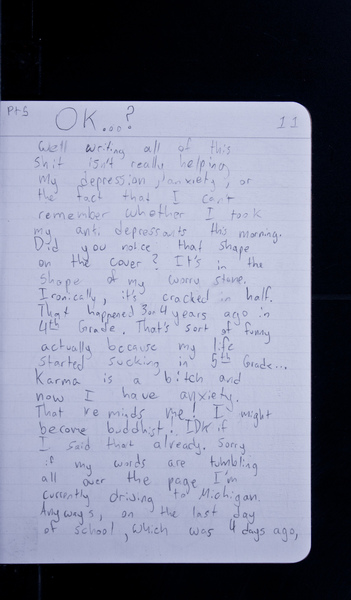 Pt5
OK...?
11
Well writing all of this
shit isn't really helping
my depression, anxiety, or
the fact that I can't
remember whether I took
my anti depressants this morning.
Did you notice that shape
on the cover? It's in the
shape of my worry stone.
Ironically, it's cracked in half.
That happened 3 or 4 years ago in
4th Grade. That's sort of funny
actually because my life
started sucking in 5th Grade...
Karma is a bitch and
now I have anxiety.
That reminds me! I might
become buddhist. IDK if
I said that already. Sorry
if my words are tumbling
all over the page I'm
currently driving to Michigan.
Anyways, on the last day
of school, which was 4 days ago,